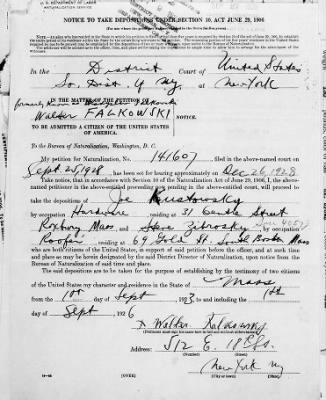 U. S. DEPARTMENT OF LABOR
NATURALIZATION SERVICE
NOTICE TO TAKE DEPOSITIONS UNDER SECTION 10, ACT JUNE 29, 1906
In the District Court of United States
So. Dist. of N.Y. at New York
IN THE MATTER OF THE PETITION OF
Walter FALKOWSKI
NOTICE.
TO BE ADMITTED A CITIZEN OF THE UNITED STATES
OF AMERICA.
To the Bureau of Naturalization, Washington, D. C.
My petition for Naturalization, No. 141607, filed in the above-named court on
Sept. 25, 1928 has been set for hearing approximately on Dec 26, 1928
Take notice, that in accordance with Section 10 of the Naturalization Act of June 29, 1906, I, the above-
named petitioner in the above-entitled proceeding now pending in the above-entitled court, will proceed to
take the depositions of Joe
by occupation Hardware residing at 31 Centre Street
Roxbury Mass and Steve
by occupation Roofer residing at 69 Gold St South Boston Mass
who are both citizens of the United States, in support of said petition before the officer, and at such time and
place as may be herein designated by the said District Director of Naturalization, upon notice from the
Bureau of Naturalization of said time and place.
The said depositions are to be taken for the purpose of establishing by the testimony of two citizens
of the United States my character and residence in the State of Mass
from the 1st day of Sept, 1923 and to including the 1st
day of Sept, 1926
x Walter
Address: 512 E. 18 St.
(Number) (Street)
New York NY
(City or town) (State)
(OVER)